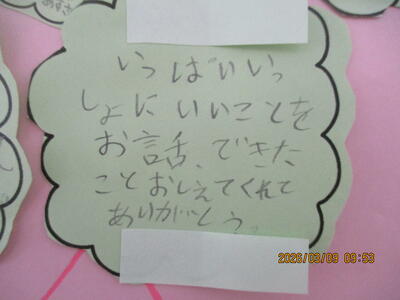 あずさ
いっぱいいっ
しょにいいことを
お話、できた
ことおしえてくれて
ありがとう。
2026/03/09 09:53